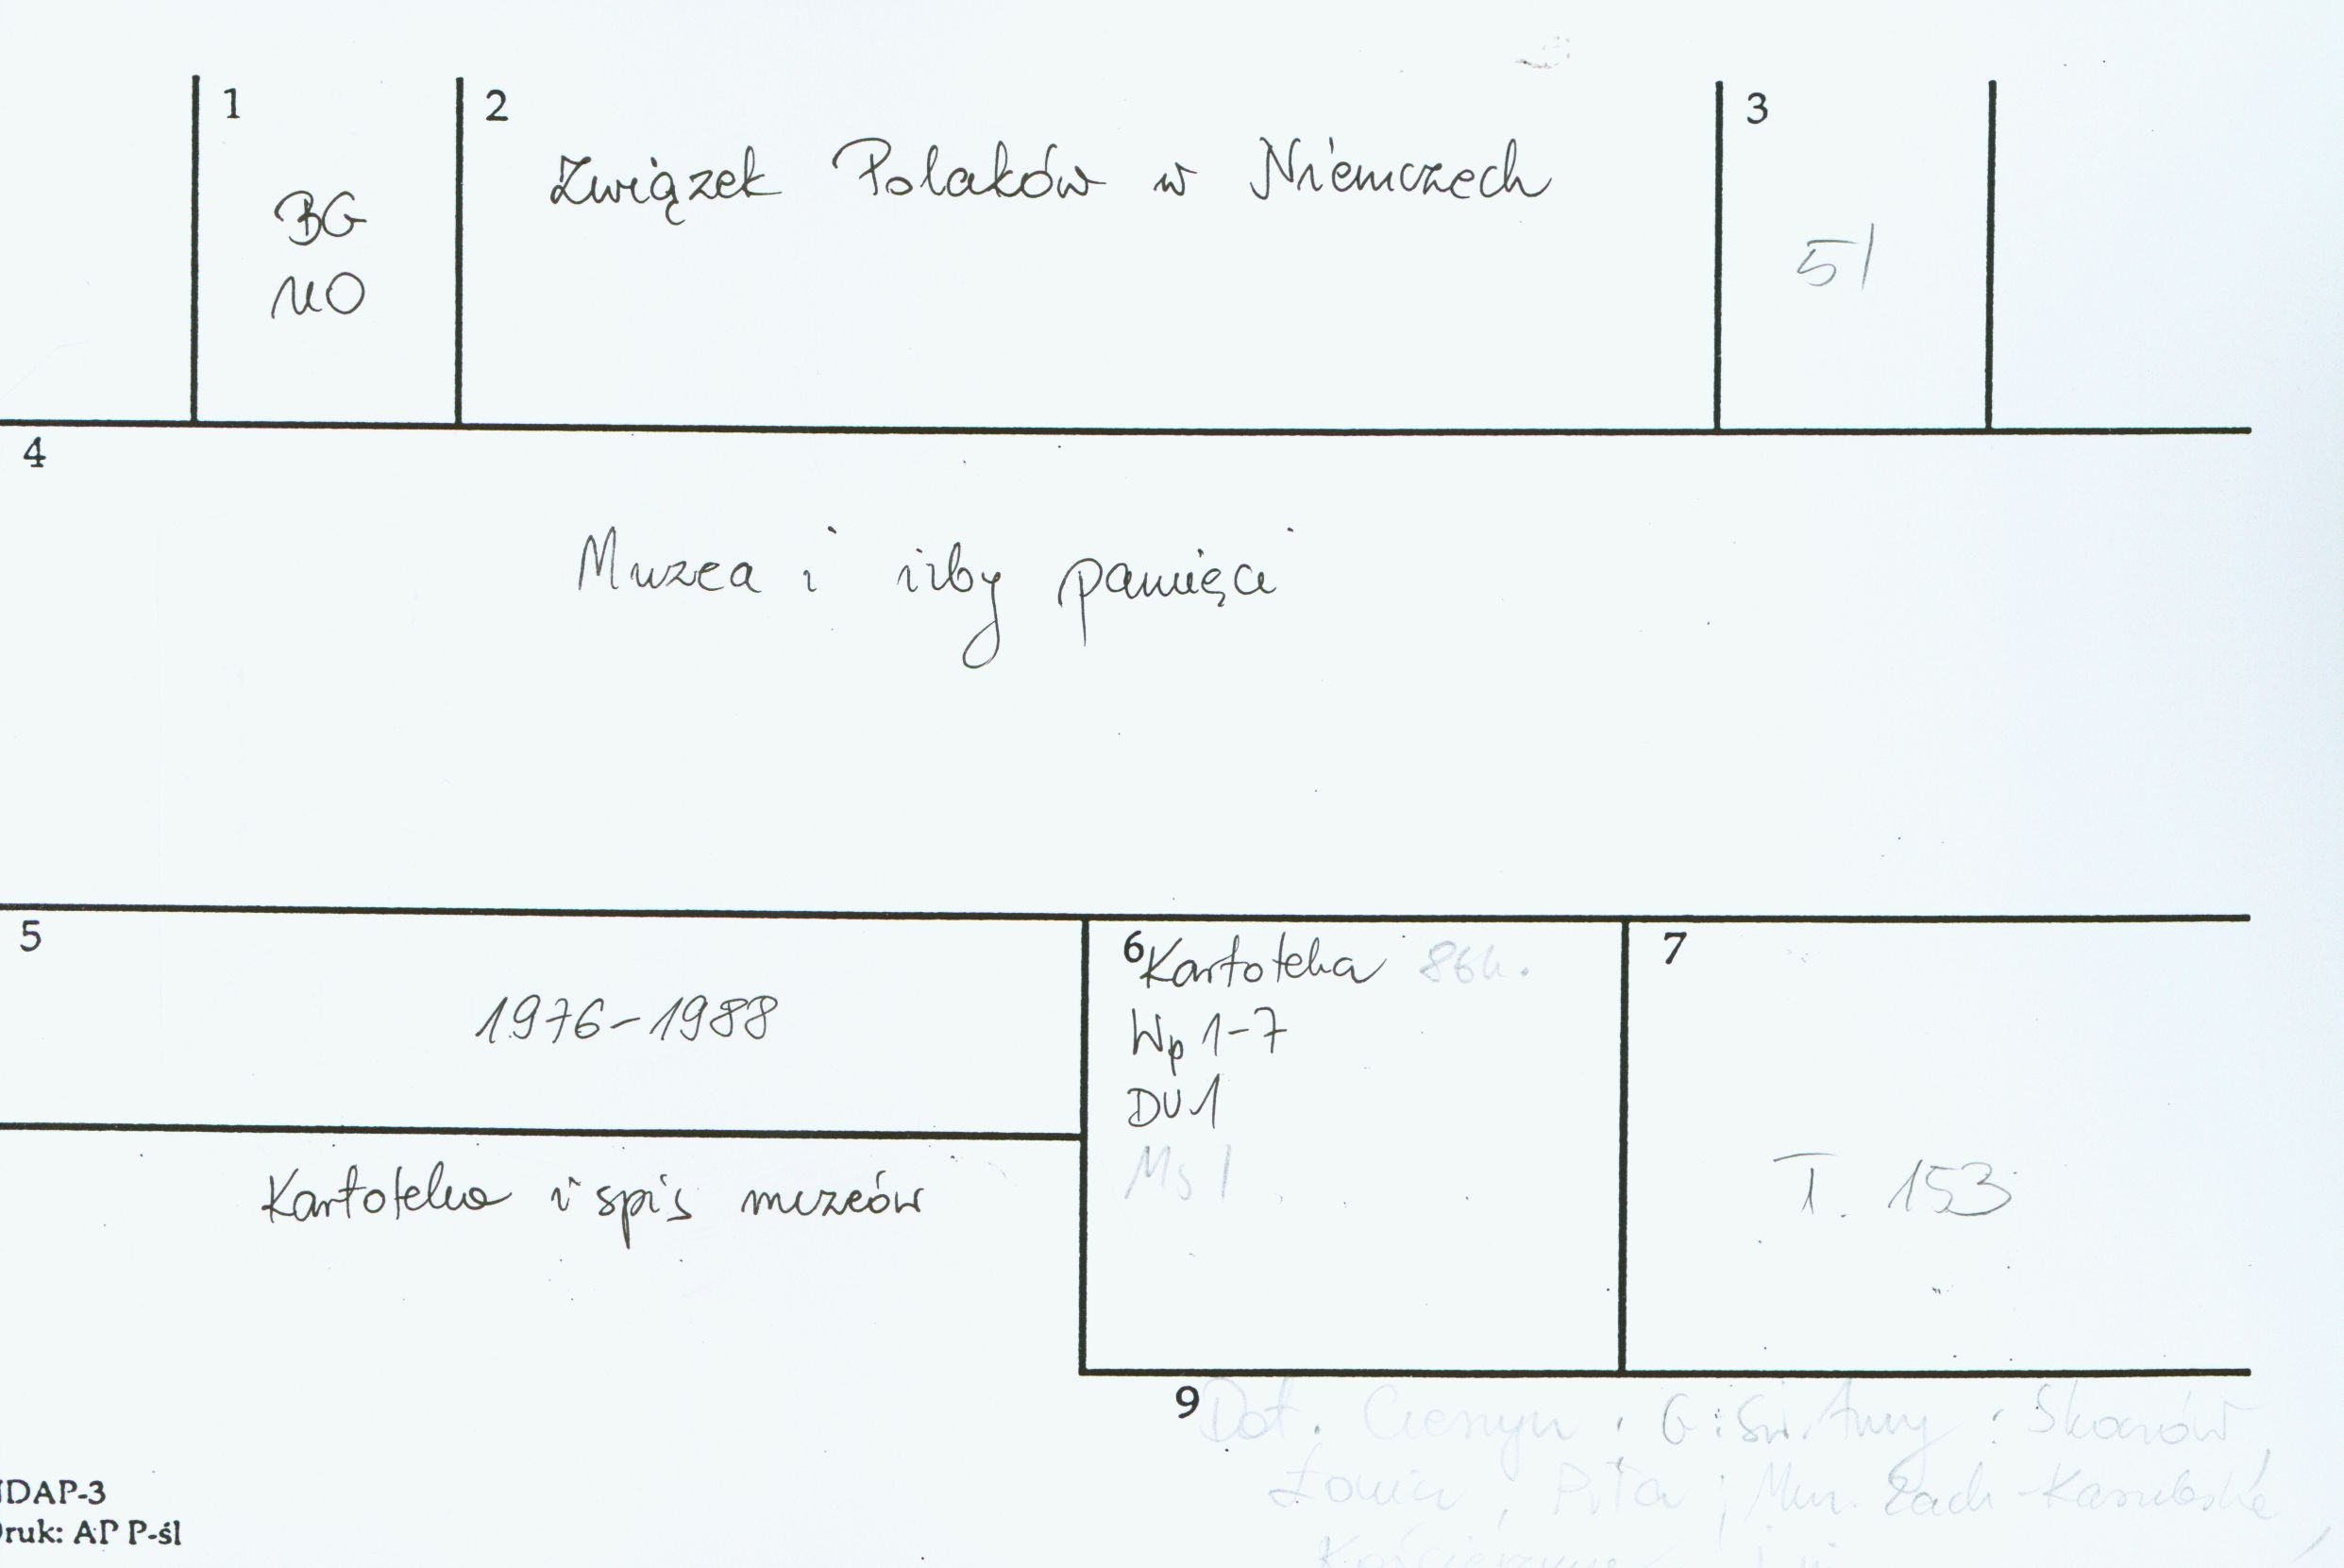 1
2
Związek Polaków w Niemczech
3
BG
UO
51
4
Muzea i izby pamięci
5
1976-1988
6 Kartoteka 86k.
Wp 1-7
DU 1
Ms 1
7
T. 153
Kartoteka i spis muzeów
9 Dot. Cieszyn, G. Św. Anny, Skorów,
Łowicz, Piła, Muz. Zach-Kaszubskie,
NDAP-3
Druk: AP P-śl